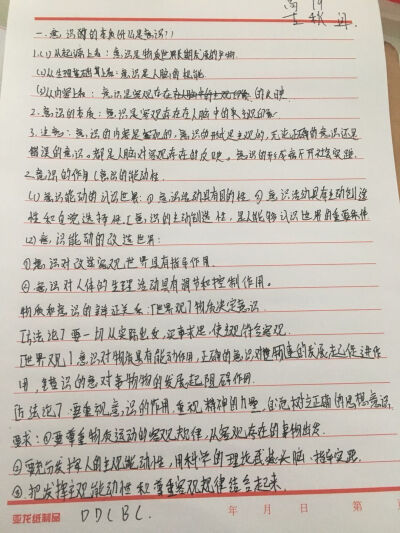 高
王秋
一.意识的本质(什么是意识?)
1.(1)从起源上看:意识是物质世界长期发展的产物
(2)从生理基础上看:意识是人脑的机能
(3)从内容上看:意识是客观存在在人脑中的 的反映
2.意识的本质:意识是客观存在在人脑中的主观印象
3.注意:意识的内容是客观的,意识的形式是主观的,无论正确的意识还是
错误的意识。都是人脑对客观存在的反映。意识的形成离不开社会实践.
2.意识的作用(意识的能动性.
(1)意识能动的认识世界:①意识活动具有目的性 ②意识活动具有主动创造
性和自觉选择性[意识的主动创造性,是人能够认识世界的重要条件
(2)意识能动的改造世界:
①意识对改造客观世界具有指导作用.
②意识对人体的生理活动具有调节和控制作用。
物质和意识的辩证关系:[世界观]物质决定意识.
[方法论]要一切从实际出发,实事求是,使主观符合客观.
[世界观]意识对物质具有能动作用,正确的意识对事物的发展起促进作
用,错误的意识对事物的发展起阻碍作用.
[方法论]:要重视意识的作用,重视精神的力量,自觉树立正确的思想意识.
要求:①要尊重物质运动的客观规律,从客观存在的事物出发.
②要充分发挥人的主观能动性,用科学的理论武装头脑、指导实践.
③把发挥主观能动性和尊重客观规律结合起来.
亚龙纸制品 DDCBC. 年 月 日 第